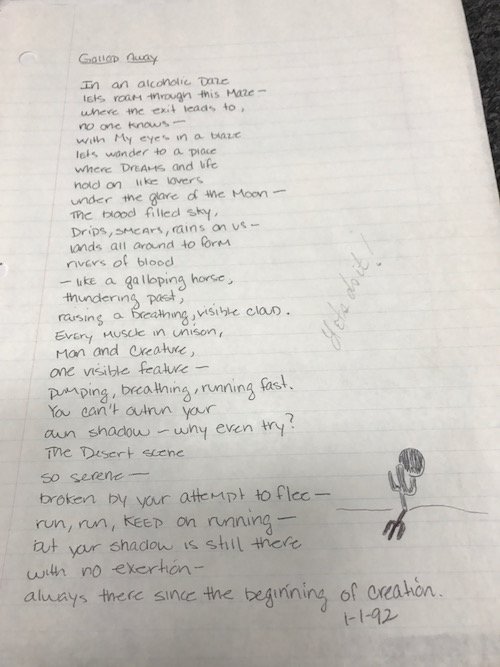 Gallop Away
In an alcoholic Daze
lets roam through this Maze—
where the exit leads to,
no one knows—
with My eyes in a blaze
lets wander to a place
where DREAMS and life
hold on like lovers
under the glare of the Moon—
The blood filled sky,
Drips, SMEARS, rains on us—
lands all around to form
rivers of blood
—like a galloping horse,
thundering past,
raising a breathing, visible cloud.
Every Muscle in unison,
Man and Creature,
one visible feature—
pumping, breathing, running fast.
You can't outrun your
own shadow—why even try?
The Desert scene
so serene—
broken by your attempt to flee—
run, run, KEEP on running—
but your shadow is still there
with no exertion—
always there since the beginning of creation.
1-1-92
Let's do it!